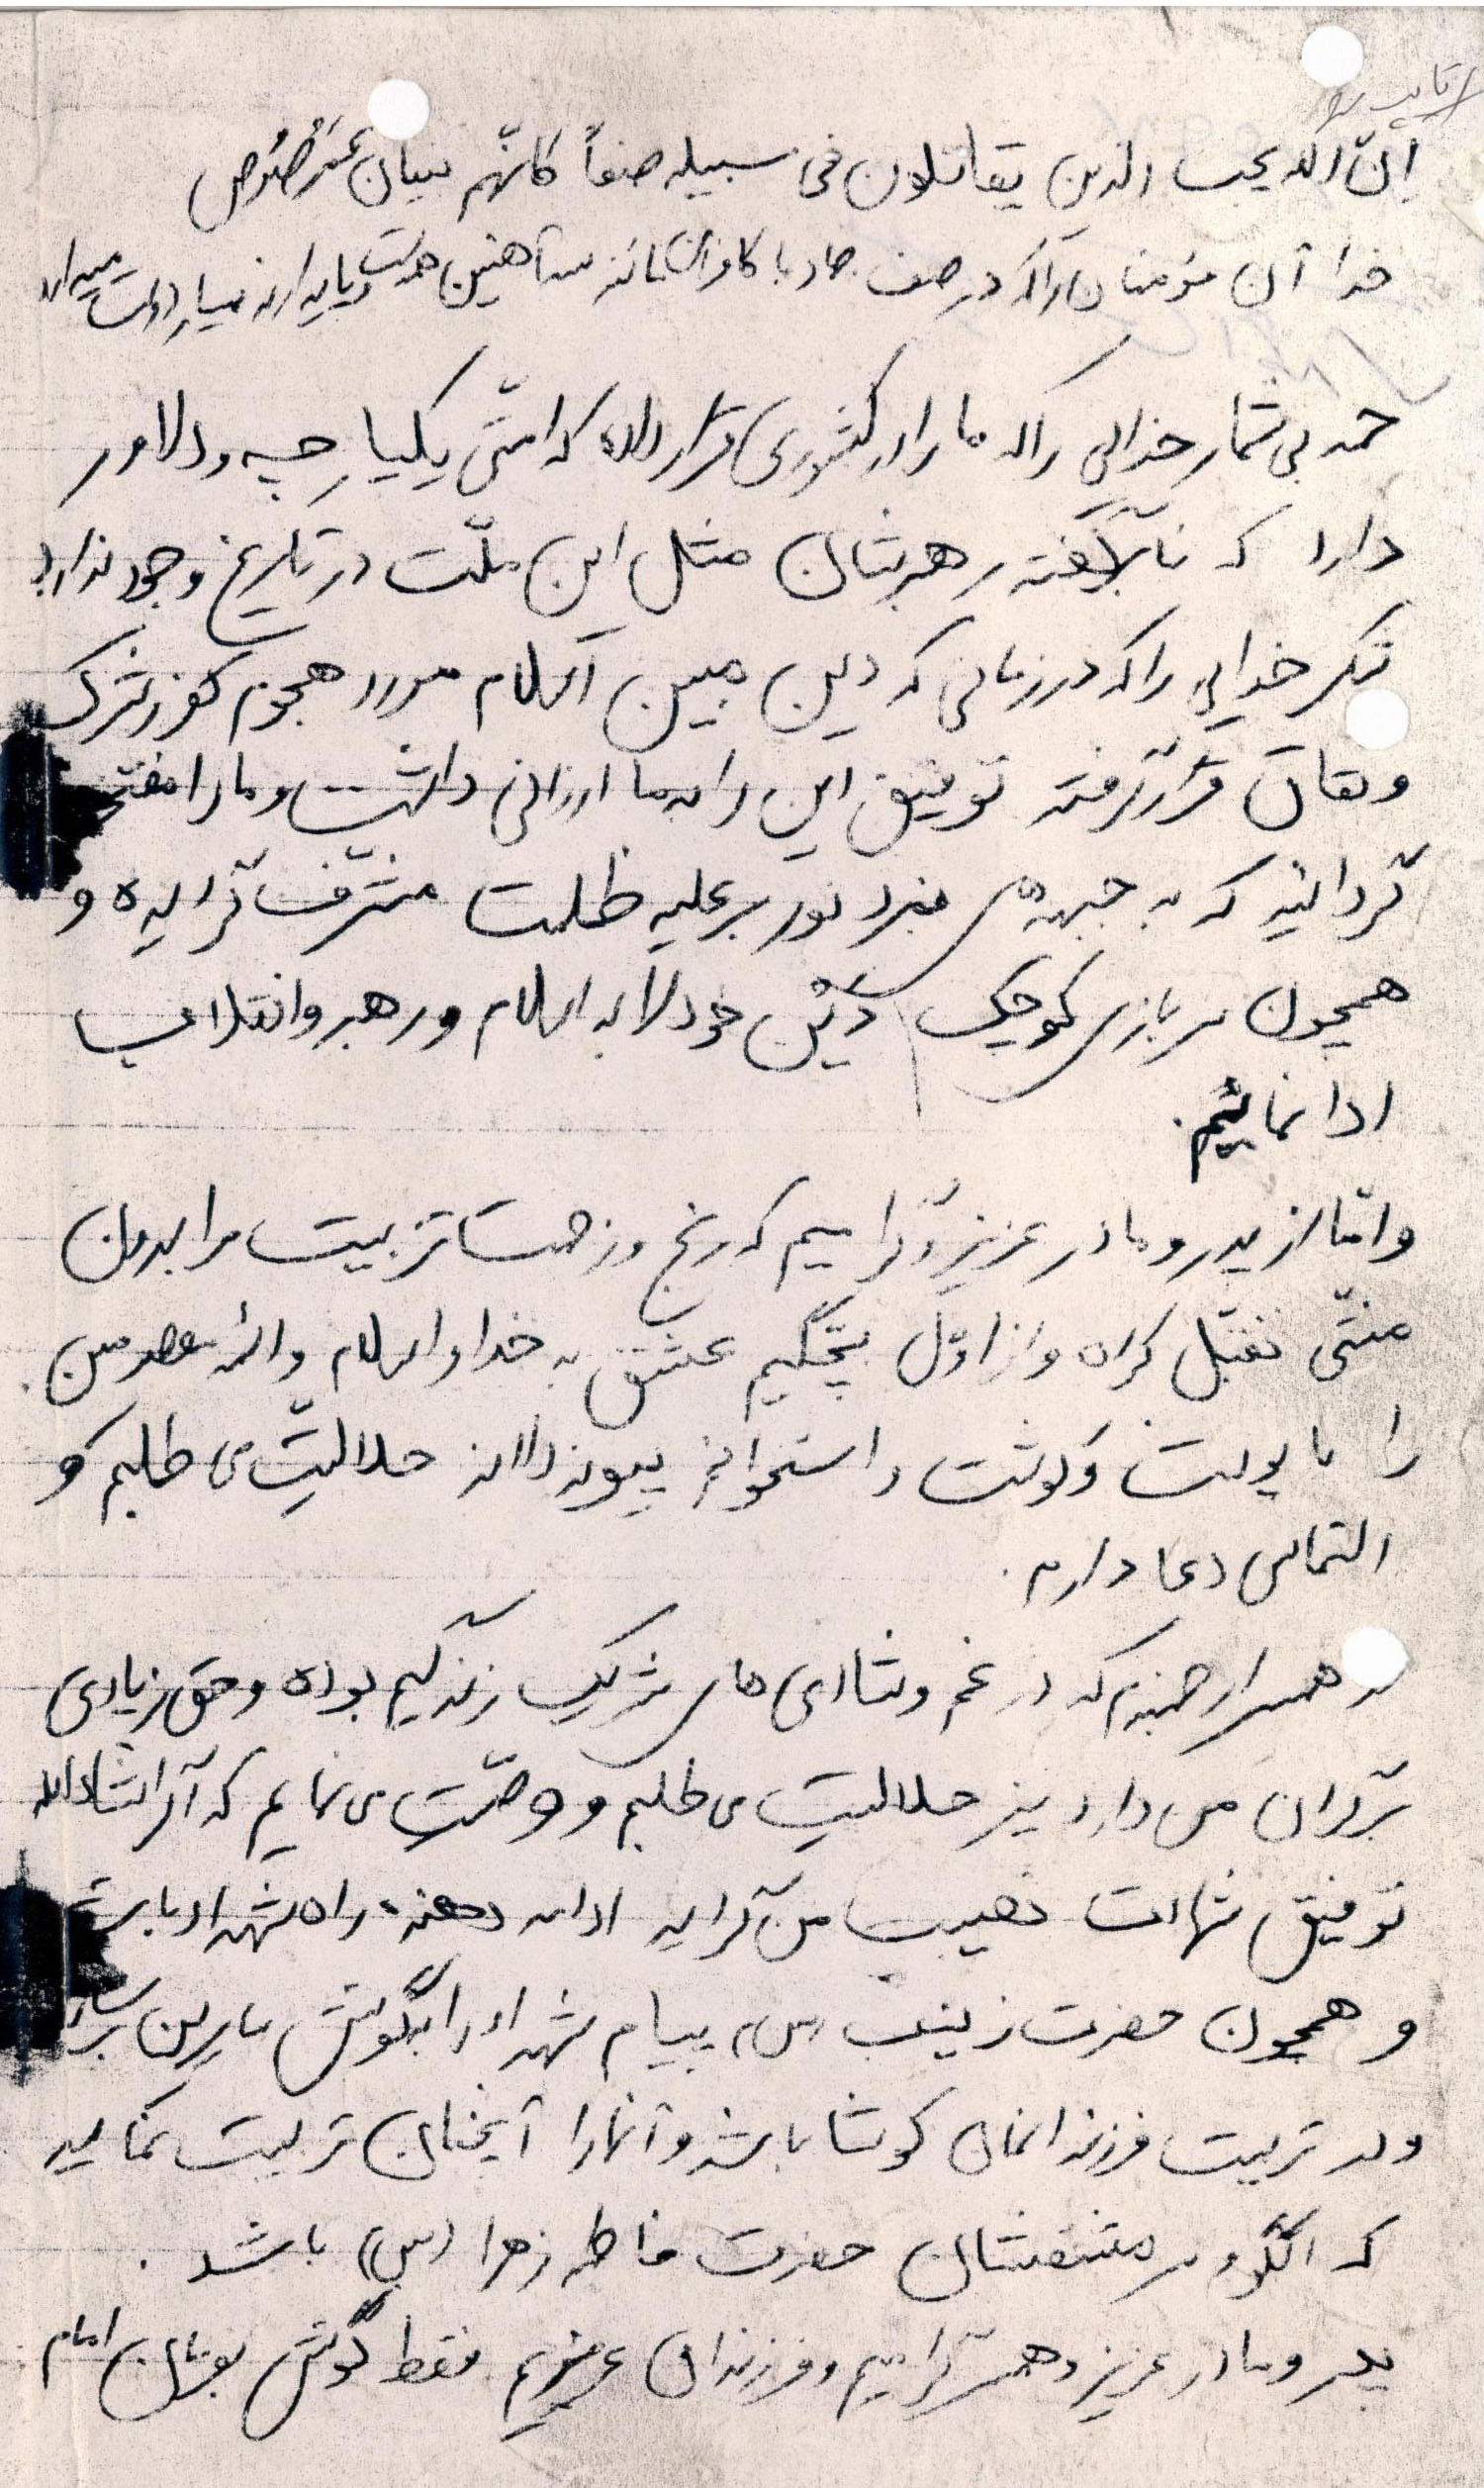 إنّ الله یحب الذین یقاتلون فی سبیله صفاً کانّهم بنیان مَرْصُوص
خدا آن مؤمنان را که در صف جهاد با کافران مانند سد آهنین همدست و پایدارند بسیار دوست میدارد
حمد بی شمار خدایی را که ما را در کشوری قرار داده که امتی یکپارچه و دلاور
دارد که بنا بگفته رهبرشان مثل این ملّت در تاریخ وجود ندارد
شکر خدایی را که در زمانی که دین مبین اسلام مورد هجوم کفر و شرک
و نفاق قرار گرفته توفیق این را به ما ارزانی داشت و ما را مفتخر
گردانید که به جبهه های نبرد نور برعلیه ظلمت مشرّف گردیده و
همچون سربازی کوچک دَیْن خود را به اسلام و رهبر و انقلاب
ادا نمائیم.
و امّا از پدر و مادر عزیز و گرامیم که رنج و زحمت تربیت مرا بدون
منتّی تقبّل کرده و از اوّل بچگیم عشق به خدا و اسلام و ائمه معصومین
را با پوست و گوشت و استخوانم پیوند دادند حلالیّت می طلبم و
التماس دعا دارم.
از همسر ارجمندم که در غم و شادی های شریک زندگیم بوده و حق زیادی
برگردن من دارد نیز حلالیت می طلبم و وصیّت می نمایم که اگر انشاءالله
توفیق شهادت نصیب من گردید ادامه دهنده راه شهدا باشد
و همچون حضرت زینب (س) پیام شهدا را بگوش سایرین برساند
و در تربیت فرزندانمان کوشا باشد و آنها را آنچنان تربیت نماید
که الگو و سرمشقشان حضرت فاطمه زهرا (س) باشد.
پدر و مادر عزیز و همسر گرامیم و فرزندان عزیزم فقط گوش بفرمان امام